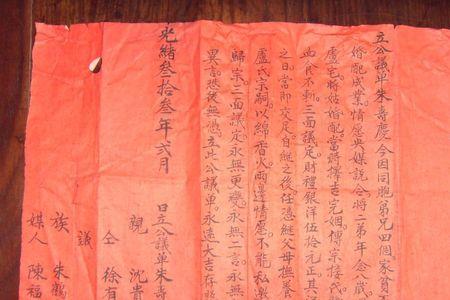 立公議单朱壽慶今因同胞弟兄四個家貧
婚配成業情愿央媒說合將二弟年念八歲
盧宅將姑婚配當將擇吉完姻傳宗接代
血食不斬三面議定財禮銀洋伍拾元正其
之日當即交足自繼之後任憑繼父母撫養
盧氏宗嗣以綿香火兩造情愿不能私
歸宗三面議定永無更變永無二言永無
異言恐後無憑立此公議单永遠大吉存照
光緒叁拾叁年弍月 日立公議单朱壽
親 沈貴
仝 徐有
議
族 朱鶴
媒人 陳福